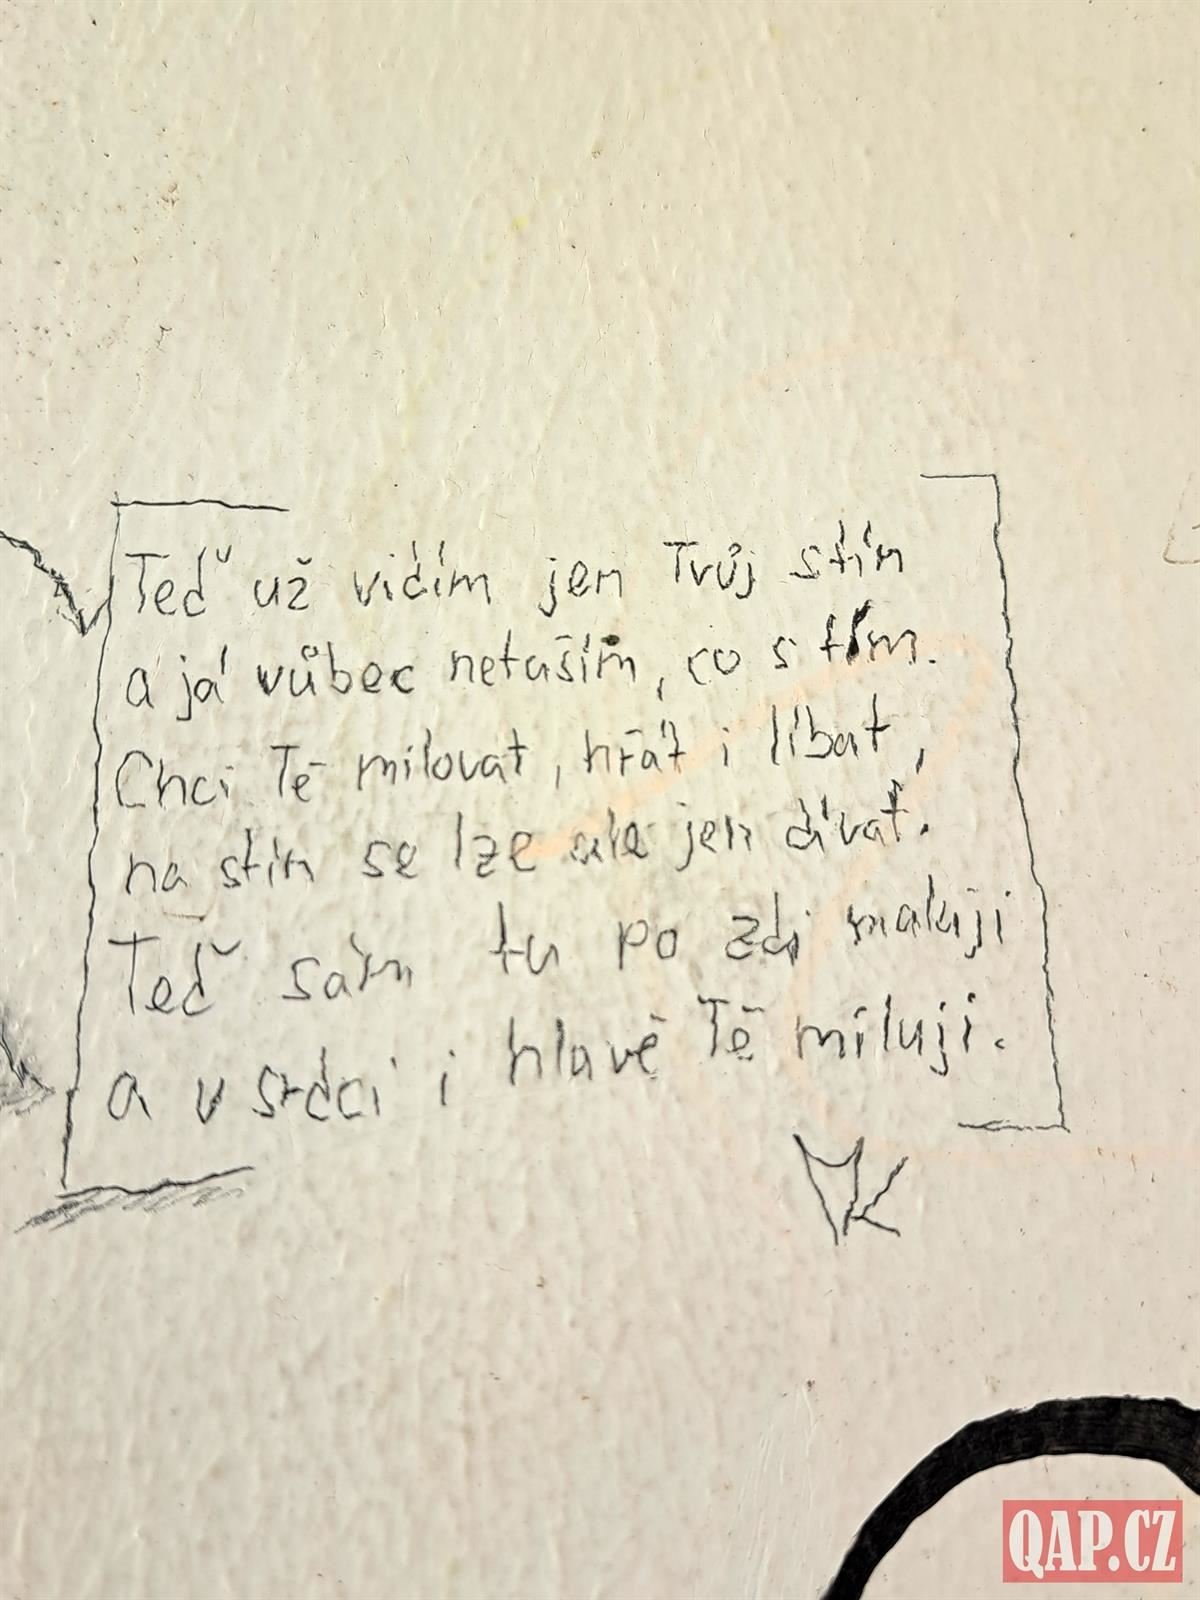 Teď už vidím jen Tvůj stín
a já vůbec netuším, co s tím.
Chci Tě milovat, hřát i líbat,
na stín se lze ale jen dívat.
Teď sám tu po zdi maluji
a v srdci i hlavě Tě miluji.
MK
QAP.CZ